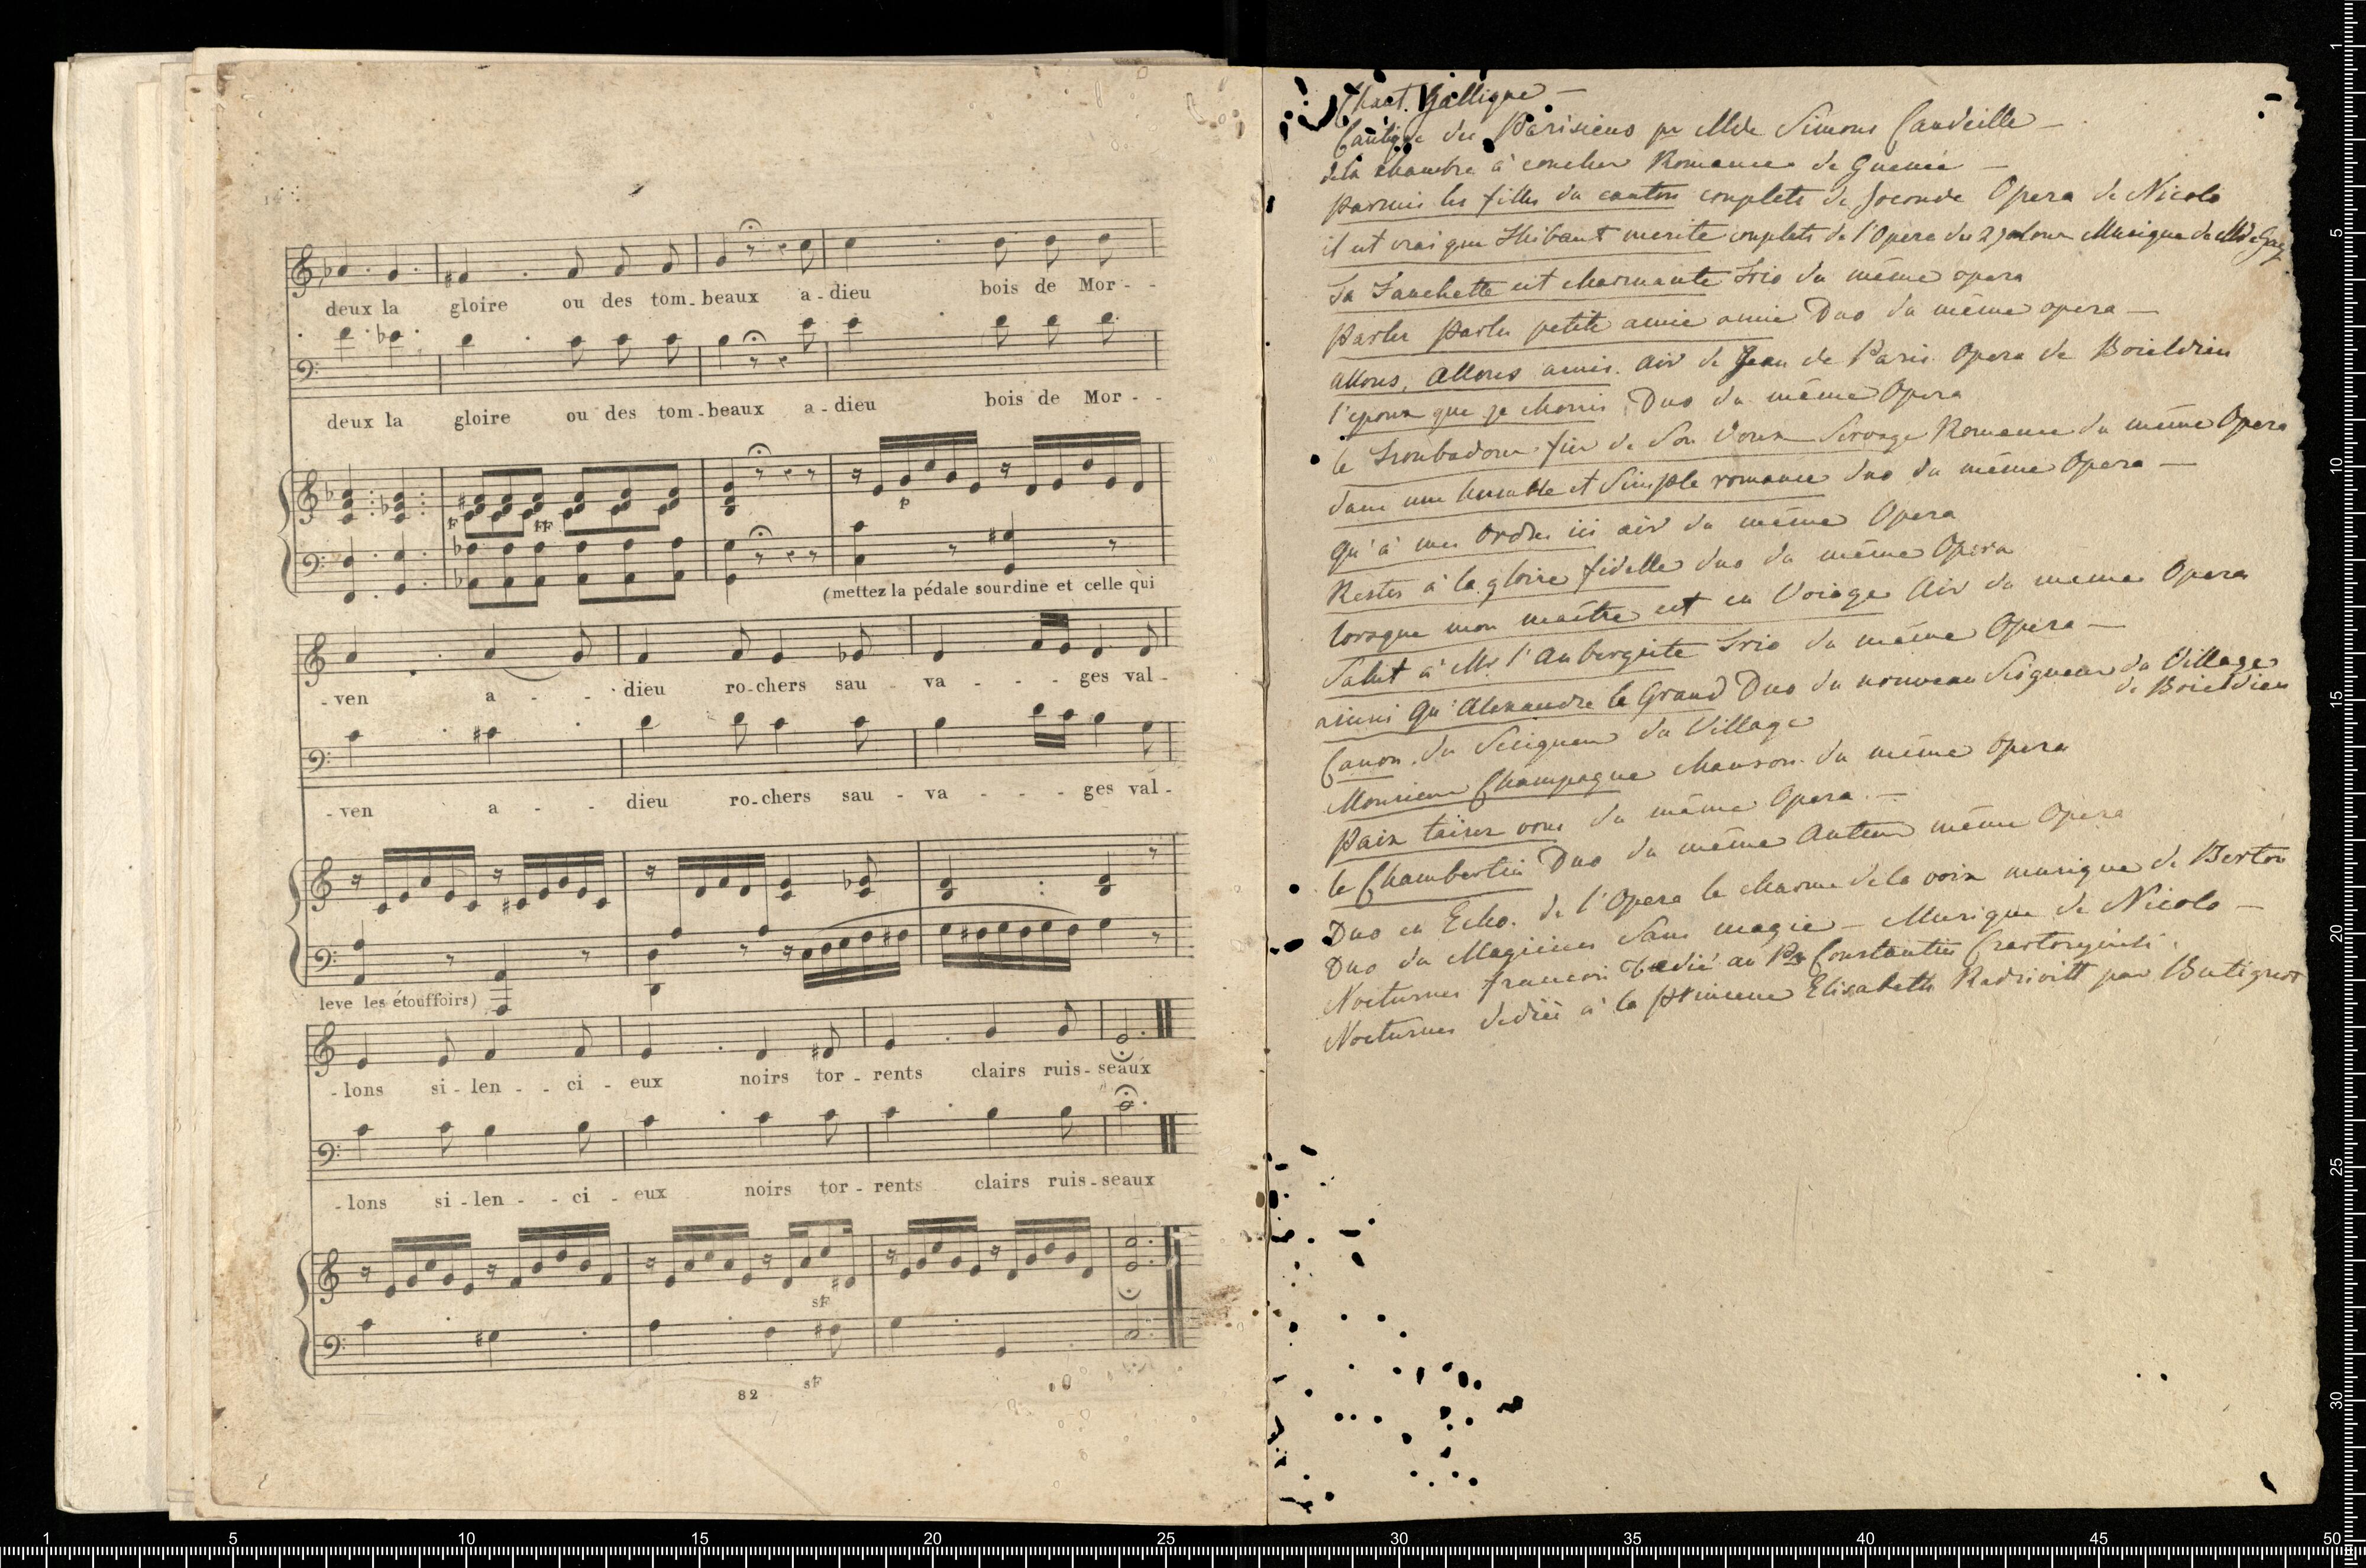 deux la gloire ou des tom-beaux a-dieu bois de Mor--
deux la gloire ou des tom-beaux a-dieu bois de Mor--
F FF p
(mettez la pédale sourdine et celle qui
-ven a - - dieu ro-chers sau - va - - - ges val-
-ven a - - dieu ro-chers sau - va - - - ges val-
leve les étouffoirs)
-lons si-len - - ci - eux noirs tor-rents clairs ruis-seaux
-lons si-len - - ci - eux noirs tor-rents clairs ruis-seaux
sF
sF
82
Chant Gallique —
Cantique des Parisiens pr Mde Simons Candeille —
de la chambre à coucher Romance de Guenée —
parmis les filles du canton couplets de Joconde Opera de Nicolo
il est vrai que Thibaut merite couplets de l'Opera des 2 jaloux Musique de Md Gay
Ta Fanchette est charmante Trio du même opera
Parlez Parlez petite amie amie Duo du même opera —
allons, allons amis. air de Jean de Paris Opera de Boieldieu
l'epoux que je choisis Duo du même Opera
le Troubadour fier de son doux servage Romance du même Opera
dans une humble et simple romance duo du même Opera —
Qu'à mes ordres ici air du même Opera
Restes à la gloire fidelle duo du même Opera
lorsque mon maître est en Voiage Air du meme Opera
Salut à Mr l'Aubergiste Trio du même Opera —
ainsi Qu'Alexandre le Grand Duo du nouveau Seigneur du Village
de Boieldieu
Canon. du Seigneur du Village
Monsieur Champagne chanson du même Opera
Paix taisez vous du même Opera —
le Chambertin Duo du même Auteur même Opera
Duo en Echo. de l'Opera le charme de la voix musique de Berton
Duo du Magicien Sans magie — Musique de Nicolo —
Nocturnes francois Dedié au Pr Constantin Czartoryinski
Nocturnes dediés à la Princesse Elisabeth Radzivill par